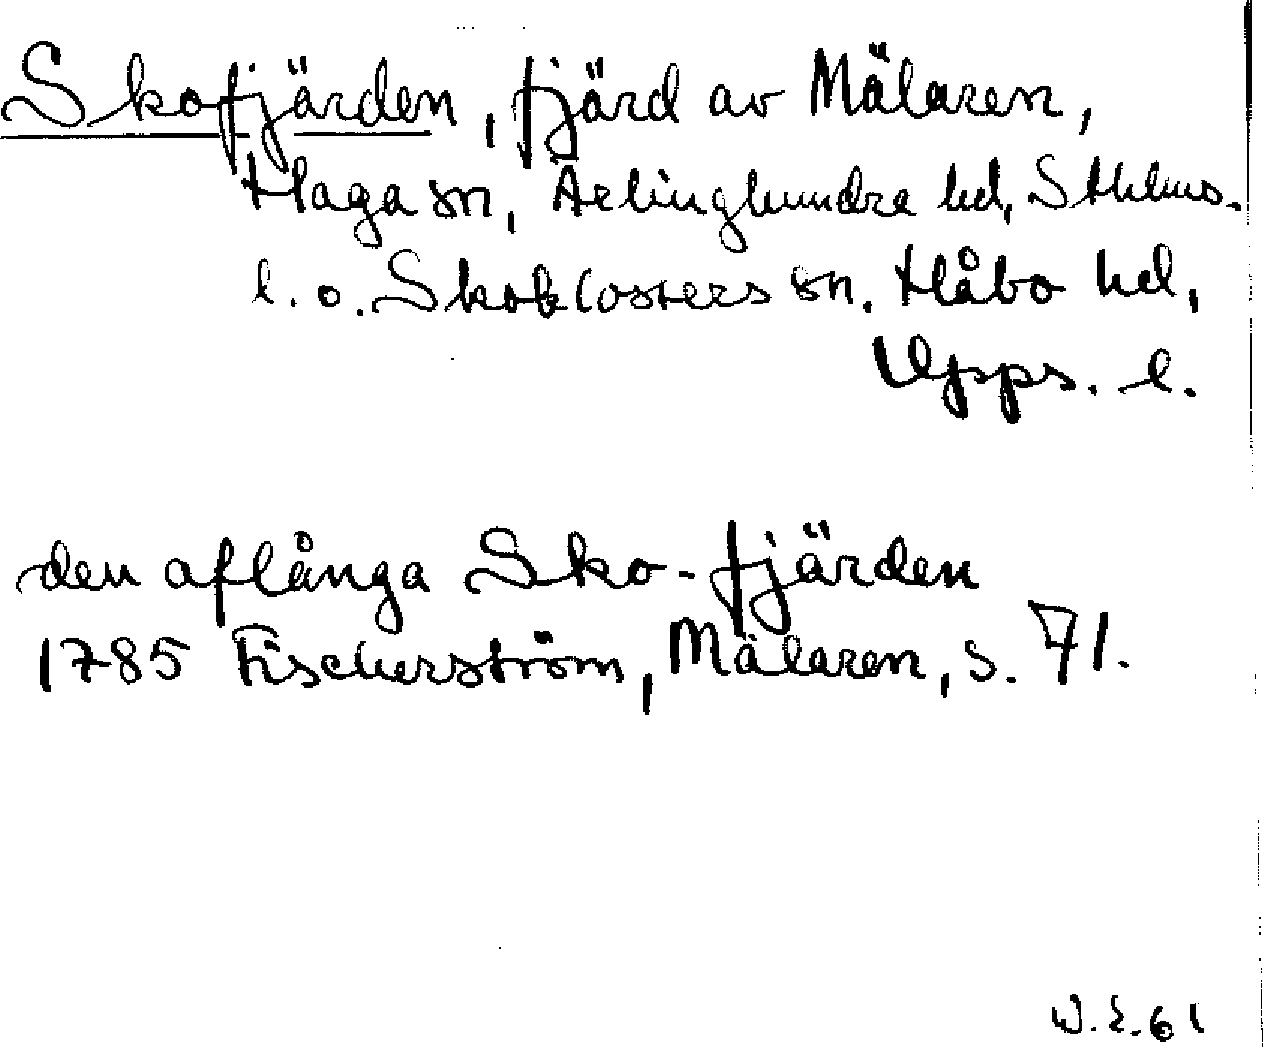 Skofjärden, fjärd av Mälaren,
Haga sn, Ärlinghundra hd, Sthlms.
l. o. Skoklosters sn. Håbo hd,
Upps. l.
den aflånga Sko-fjärden
1785 Fischerström, Mälaren, s. 71.
W.E.61